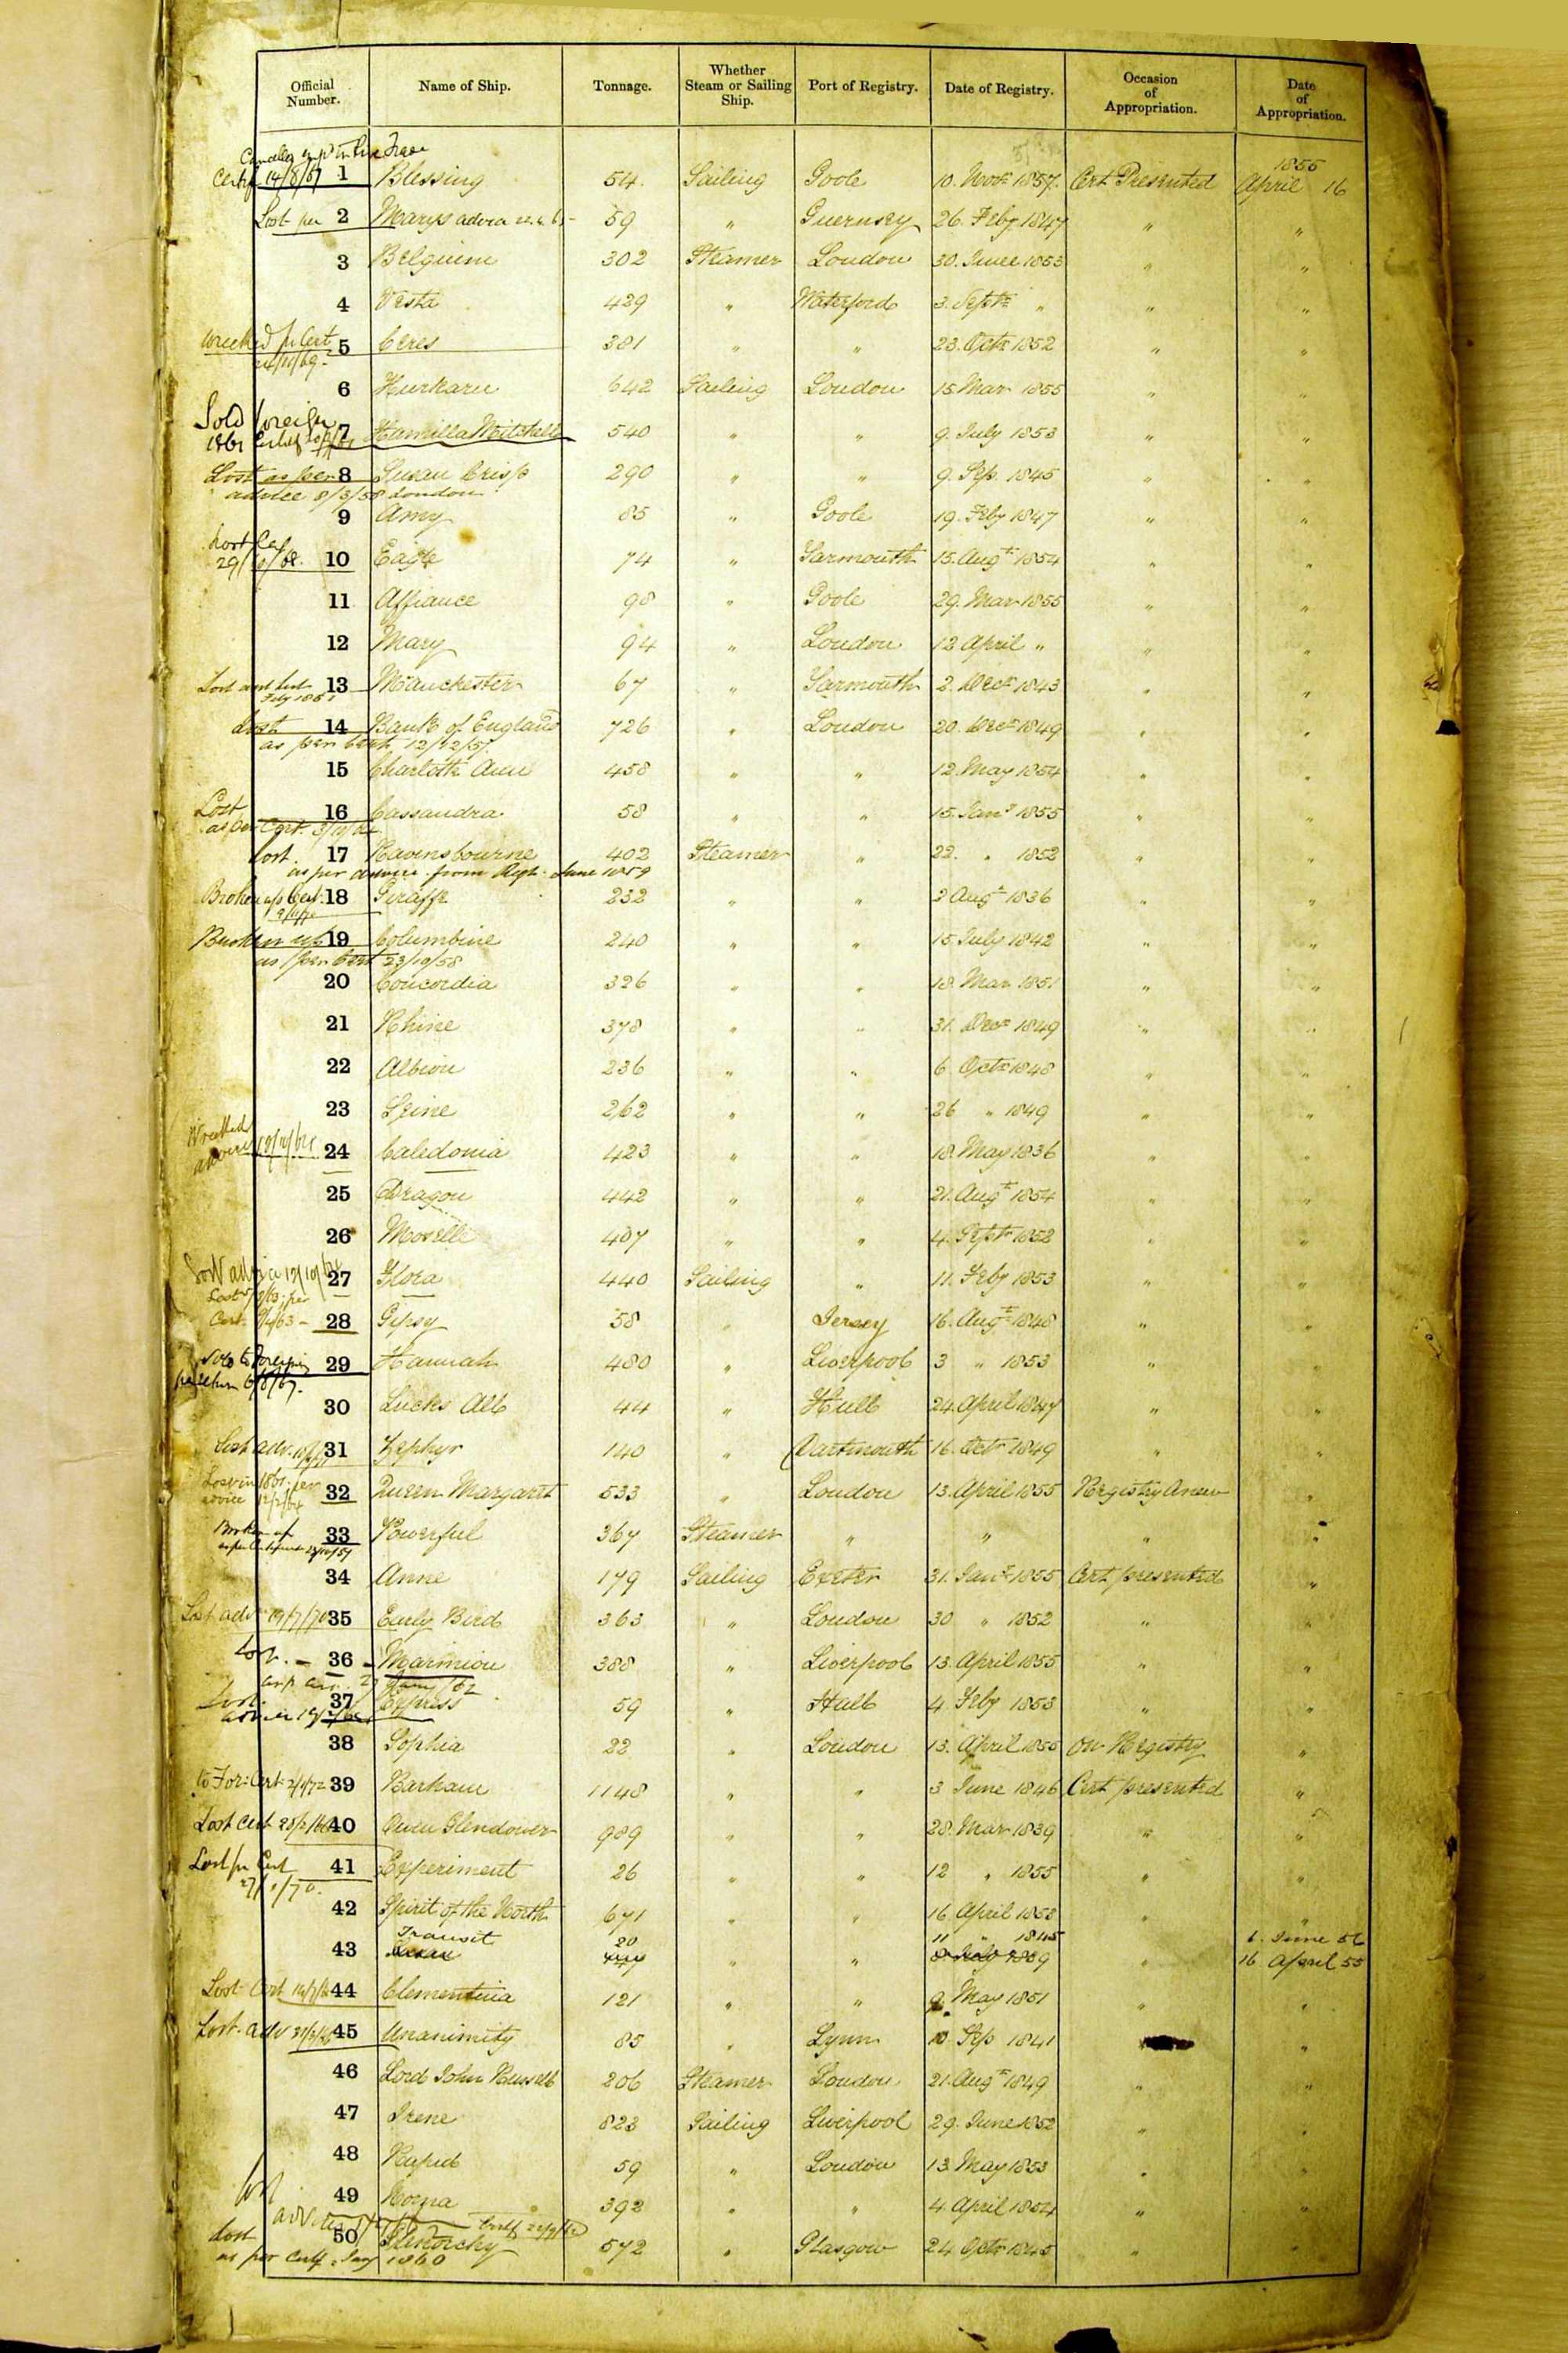 Official Number. Name of Ship. Tonnage. Whether Steam or Sailing Ship. Port of Registry. Date of Registry. Occasion of Appropriation. Date of Appropriation.
1855
14/8/67 1 Blessing 54 Sailing Goole 10. Novr Cert Presented April 16
Lost per 2 Marys 59 " Guernsey 26. Feby 1847 " "
3 Belguim 302 Steamer London 30. June 1853 " "
4 Vesta 429 " Waterford 3. Septr " " "
Wrecked pr Cert
5 Ceres 381 " " 23. Octr 1852 " "
6 Hurkaru 642 Sailing London 15. Mar 1855 " "
Sold foreign
7 Hamilla Mitchell 540 " " 9. July 1853 " "
Lost as per 8 Susan Crisp 290 " " 9. Sep. 1845 " "
advice 8/3/58 London
9 Amy 85 " Goole 19. Feby 1847 " "
10 Eagle 74 " Yarmouth 15. Augt 1854 " "
11 Affiance 98 " Goole 29. Mar 1855 " "
12 Mary 94 " London 12 April " " "
13 Manchester 67 " Yarmouth 2. Decr 1843 " "
Lost 14 Bank of England 726 " London 20. Decr 1849 " "
as per Cert. 12/12/57.
15 Charlotte Ann 458 " " 12. May 1854 " "
Lost 16 Cassandra 58 " " 15. Jany 1855 " "
as per Cert
Lost. 17 Ravensbourne 402 Steamer " 22. " 1852 " "
as per advice from Regr. June 1859
Broken up Cert. 18 Giraffe 232 " " 2 Augt 1836 " "
Broken up 19 Columbine 240 " " 15 July 1842 " "
as per Cert 23/10/58
20 Concordia 326 " " 18. Mar 1851 " "
21 Rhine 378 " " 31. Decr 1849 " "
22 Albion 236 " " 6 Octr 1848 " "
23 Seine 262 " " 26 " 1849 " "
Wrecked
24 Caledonia 423 " " 18. May 1836 " "
25 Dragon 442 " " 21. Augt 1854 " "
26 Moselle 407 " " 4. Septr 1852 " "
27 Flora 440 Sailing " 11. Feby 1853 " "
28 Gipsy 58 " Jersey 16. Augt 1848 " "
Sold to Foreign 29 Hannah 480 " Liverpool 3 " 1853 " "
6/8/67.
30 Lucks All 44 " Hull 24. April 1847 " "
Lost adv. 31 Zephyr 140 " Dartmouth 16. Octr 1849 " "
32 Queen Margaret 533 " London 13. April 1855 Registry Anew "
Broken up
33 Powerful 367 Steamer " " " "
34 Anne 179 Sailing Exeter 31. Jany 1855 Cert presented "
Lost adv 19/7/70 35 Early Bird 363 " London 30 " 1852 " "
36 Marmion 388 " Liverpool 13. April 1855 " "
Lost. 37 Express 59 " Hull 4. Feby 1853 " "
38 Sophia 22 " London 13. April 1855 On Registry "
to For: Cert 39 Barham 1148 " " 3 June 1846 Cert presented "
Lost Cert 40 Owen Glendower 989 " " 28. Mar 1839 " "
Lost pr Cert 41 Experiment 26 " " 12 " 1855 " "
42 Spirit of the North 671 " " 16 April 1853 " "
Transit 20 11 " 1845 June 56
43 " " 1839 " 16 April 55
Lost Cert 44 Clementina 121 " " 9. May 1851 " "
Lost adv 45 Unanimity 85 " Lynn 10 Sep 1841 "
46 Lord John Russell 206 Steamer London 21. Augt 1849 " "
47 Irene 823 Sailing Liverpool 29. June 1852 " "
48 Rapid 59 " London 13. May 1853 " "
Lost 49 Norna 392 " " 4. April 1854 " "
Lost 50 Glenorchy 572 " Glasgow 24 Octr 1845 " "
as per Certf. Jany 1860